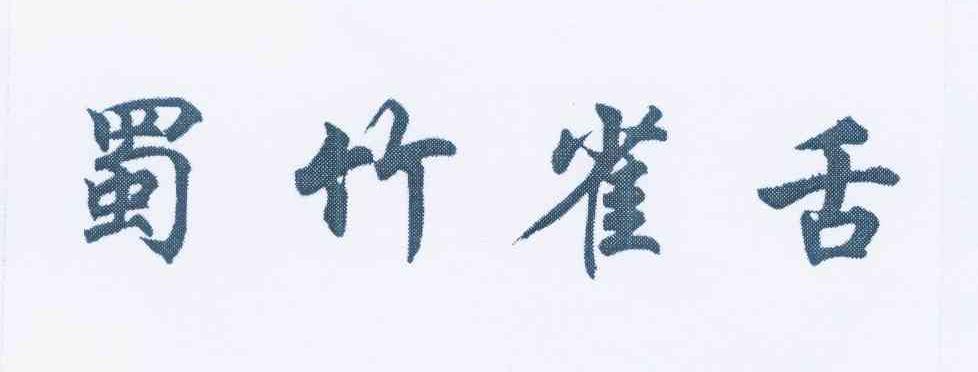 蜀竹雀舌